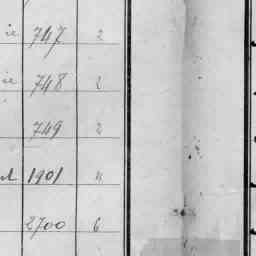 ie 747 2
ie 748 2
749 2
1901 4
2700 6